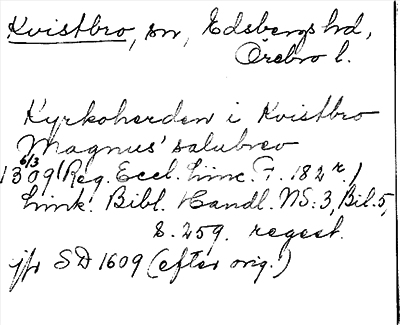 Kvistbro, sn, Edsbergs hd,
Örebro l.
Kyrkoherden i Kvistbro
Magnus' salubrev
6/3
1309 (Reg. Eccl. Linc. F. 182 r.)
Link. Bibl. Handl. NS: 3, Bil. 5,
S. 259. regest.
jfr SD 1609 (efter orig.)